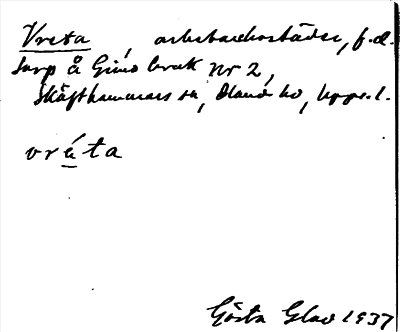 Vreta, arbetarebostäder, f.d.
torp å Gimo bruk nr 2,
Skäfthammars sn, Olands hd, Upps. l.
vréta
Gösta Glav 1937